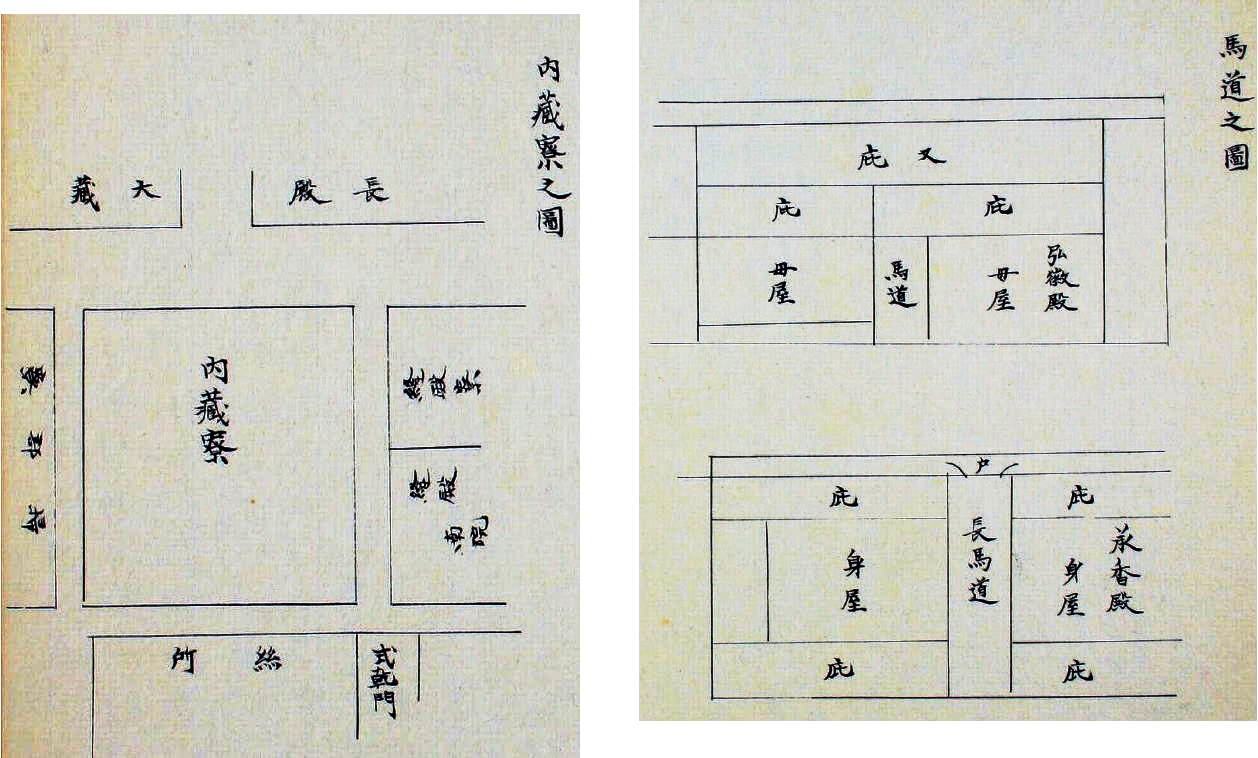 內藏寮之圖
長殿
大藏
內藏寮
縫殿寮
縫殿
南院
絲所
式乾門
馬道之圖
又庇
庇
庇
弘徽殿
母屋
馬道
母屋
戶
庇
庇
承香殿
身屋
長馬道
身屋
庇
庇